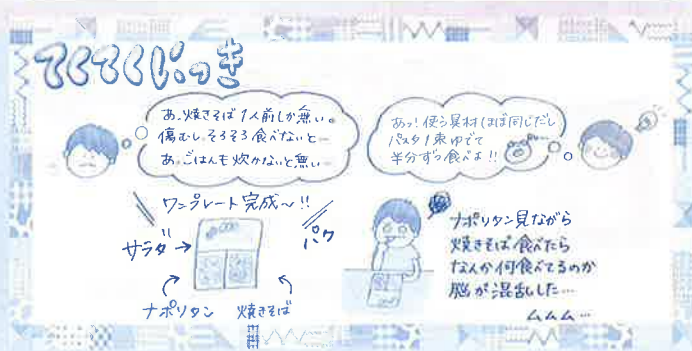 てくてくにっき
あ、焼きそば1人前しか無い。
傷むし、そろそろ食べないと…
あ、ごはんも炊かないと無い…
あっ!使う具材ほぼ同じだし
パスタ1束ゆでて
半分ずつ食べよ!!
ワンプレート完成〜!!
サラダ→
パク
ナポリタン 焼きそば
ナポリタン見ながら
焼きそば食べたら
なんか何食べてるのか
脳が混乱した…
ムムム…